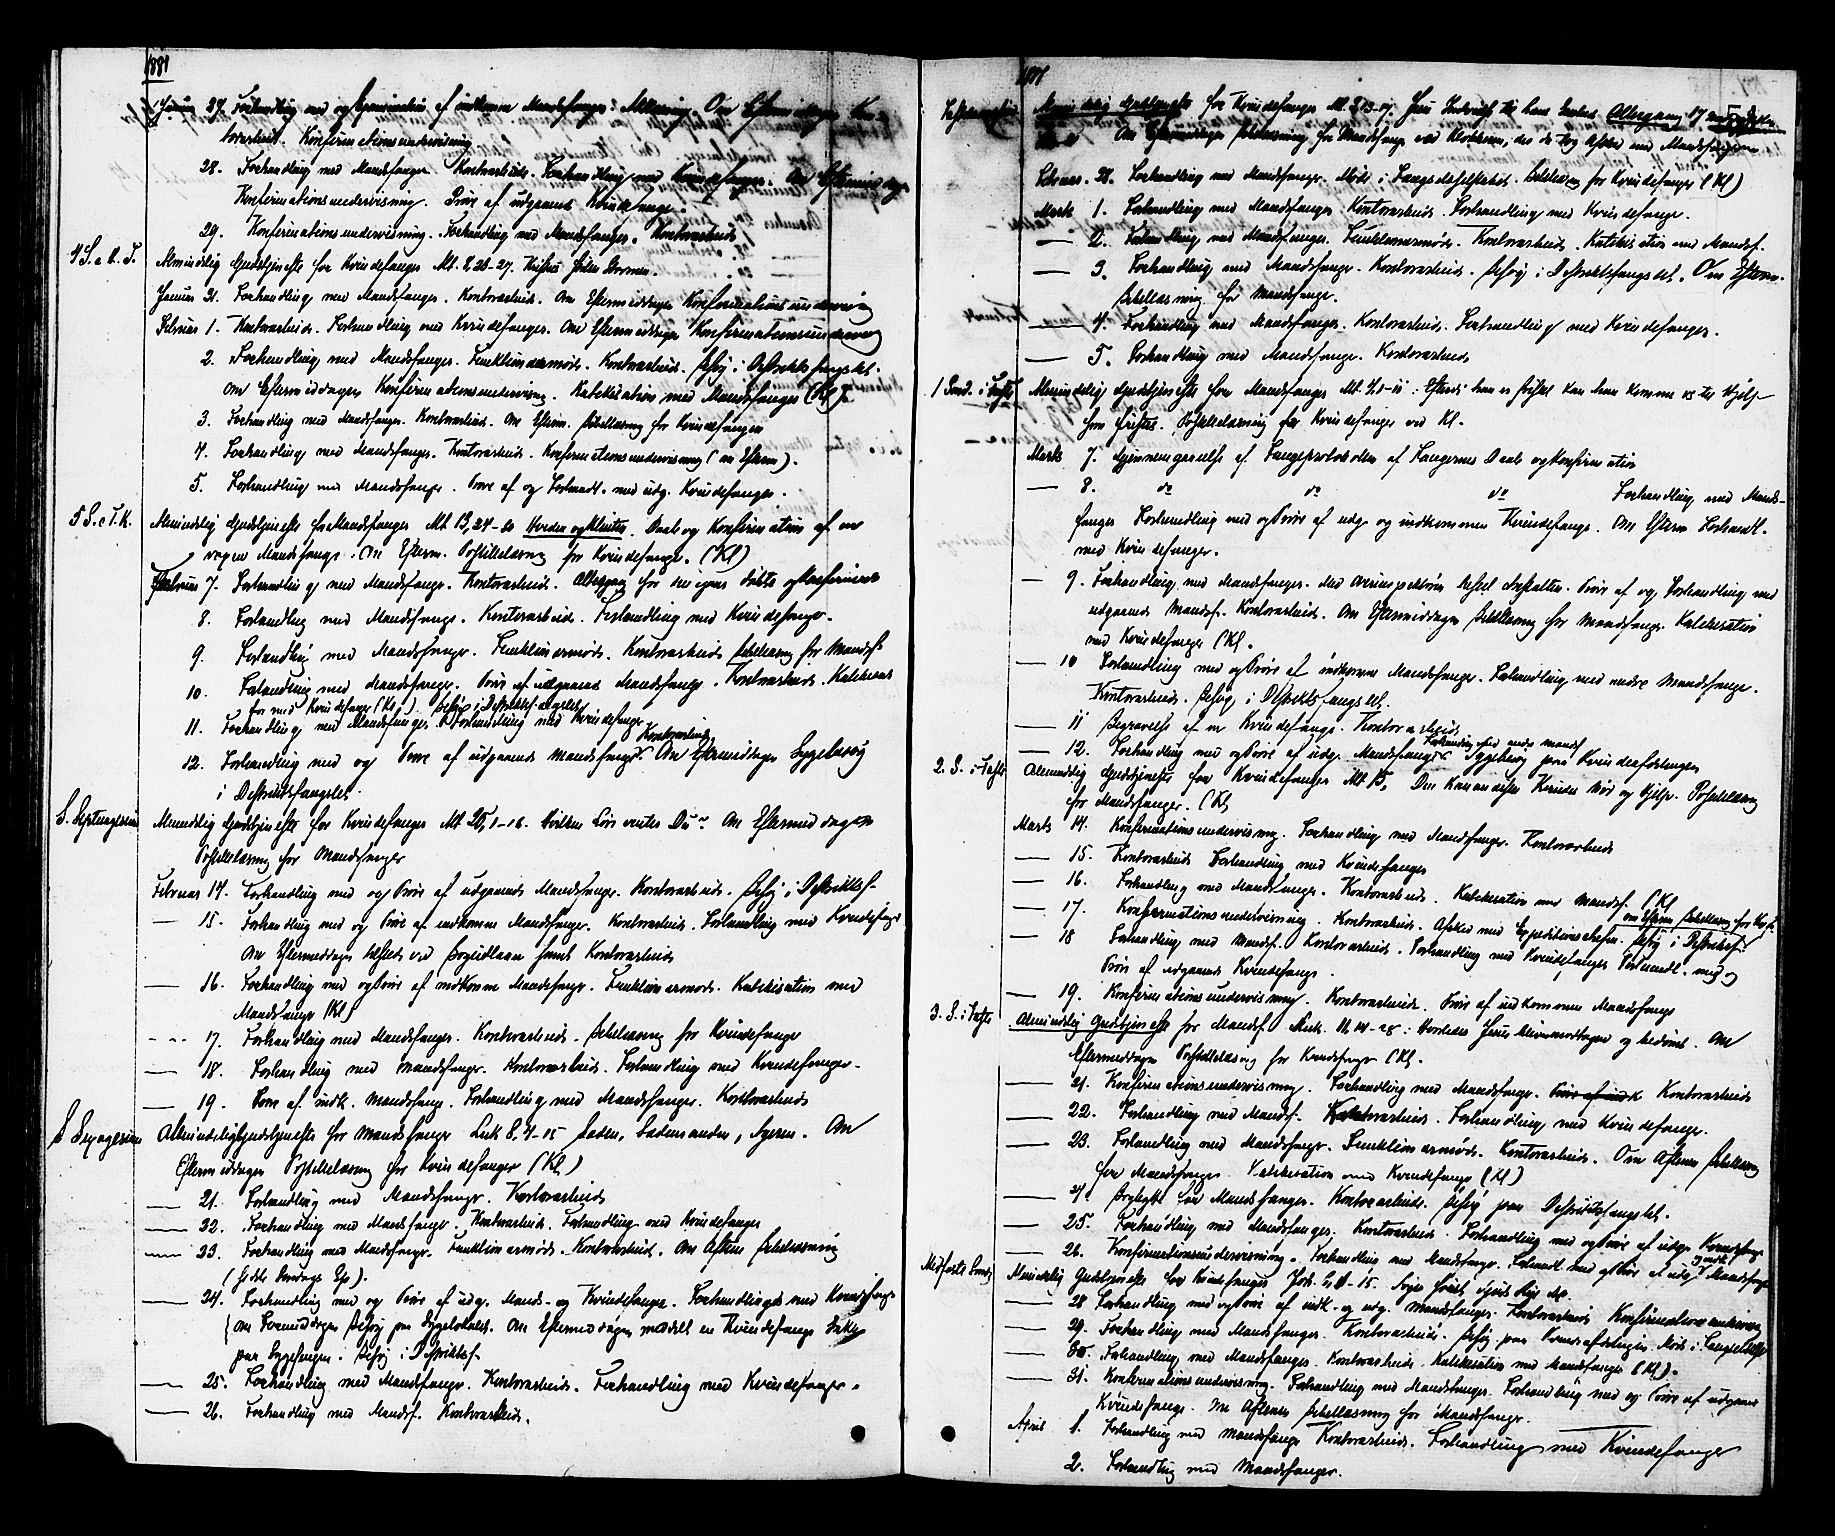 1881
Januar 27. Forhandling med og Examination af indkomne Mandsfanger: Altergang. Om Eftermiddagen Kon-
torarbeid. Konfirmationsundervisning
28. Forhandling med Mandsfanger. Kontorarbeid. Forhandling med Kvindefanger. Om Eftermiddagen
Konfirmationsundervisning. Prøve af udgaaende Kvindefange.
29. Konfirmationsundervisning. Forhandling med Mandsfanger. Kontorarbeid
4 S. e. H. 3. Almindelig Gudstjeneste for Kvindefanger Mt. 8, 23-27. Kristus stiller Stormen.
Januar 31. Forhandling med Mandsfanger. Kontorarbeid. Om Eftermiddagen Konfirmationsundervisning
Februar 1. Kontorarbeid. Forhandling med Kvindefanger. Om Eftermiddagen Konfirmationsundervisning
2. Forhandling med Mandsfanger. Funktionærmøde. Kontorarbeid. Besøg i Distriktsfængslet.
Om Eftermiddagen Konfirmationsundervisning. Katekisation med Mandsfanger (Kl)
3. Forhandling med Mandsfanger. Kontorarbeid. Om Efterm. Bibellæsning for Kvindefanger
4. Forhandling med Mandsfanger. Kontorarbeid. Konfirmationsundervisning (om Efterm).
5. Forhandling med Mandsfange. Prøve af og Forhandl. med udg. Kvindefanger.
5 S. e. H. K. Almindelig Gudstjeneste for Mandsfanger Mt 13, 24-30 Hveden og Klinten. Daab og Konfirmation af en
voxen Mandsfange. Om Efterm. Postillelæsning for Kvindefange. (Kl)
Februar 7. Forhandling med Mandsfange. Kontorarbeid. Altergang for den igaar døbte og konfirmerede
8. Forhandling med Mandsfange. Kontorarbeid. Forhandling med Kvindefange.
9. Forhandling med Mandsfange. Funktionærmøde. Kontorarbeid. Bibellæsning for Mandsf.
10. Forhandling med Mandsfange. Prøve af udgaaende Mandsfange. Kontorarbeid. Katekisa-
tion med Kvindefange (Kl). Besøg i Distriktsfængslet
11. Forhandling med Mandsfanger. Forhandling med Kvindefange
12. Forhandling med og Prøve af udgaaende Mandsfanger. Kontorarbeid. Om Eftermiddagen Sygebesøg
i Distriktsfængslet.
S. Septuagesima Almindelig Gudstjeneste for Kvindefanger Mt 20, 1-16. Hvilken Løn venter Du? Om Eftermiddagen
Postillelæsning for Mandsfanger
Februar 14. Forhandling med og Prøve af udgaaende Mandsfange. Kontorarbeid. Besøg i Distriktsf.
— 15. Forhandling med og Prøve af indkomne Mandsfanger. Kontorarbeid. Forhandling med Kvindefange
Om Eftermiddagen samt Kontorarbeid
— 16. Forhandling med og Prøve af indkomne Mandsfange. Funktionærmøde. Katekisation med
Mandsfange (Kl)
17. Forhandling med Mandsfanger. Kontorarbeid. Bibellæsning for Kvindefange
— 18. Forhandling med Mandsfange. Kontorarbeid. Forhandling med Kvindefange.
— 19. Prøve af indk. Mandsfange. Forhandling med Mandsfanger. Kontorarbeid
S Sexagesima Almindelig Gudstjeneste for Mandsfanger Luk 8, 4-15 Sæden, Sædemanden, Ageren. Om
Eftermiddagen Postillelæsning for Kvindefanger (Kl.)
— 21. Forhandling med Mandsfange. Kontorarbeid
— 22. Forhandling med Mandsfange. Kontorarbeid. Forhandling med Kvindefange
— 23. Forhandling med Mandsfange. Funktionærmøde. Kontorarbeid. Om Aftenen Bibellæsning
(sidste Søndags Ep).
— 24. Forhandling med og Prøve af udg. Mands- og Kvindefange. Forhandling med Kvindefange
Om Formiddagen Besøg paa Sygelokalet. Om Eftermiddagen meddelt en Kvindefange
paa Sygesengen. Besøg i Distriktsf.
— 25. Forhandling med Mandsfange. Kontorarbeid. Forhandling med Kvindefange.
— 26. Forhandling med Mandsf. Kontorarbeid.
1881
51
Fastelavnssøndag Almindelig Gudstjeneste for Kvindefanger Mt. 3, 13-17. Jesu Altergang 17
Om Eftermiddagen Bibellæsning for Mandsfange ved Klokkeren, der tog Afsked med Mandsfangerne
Februar. 28. Forhandling med Mandsfange. Møde i Fængselsselskabet. Bibellæsn for Kvindefanger (Kl)
Marts 1. Forhandling med Mandsfanger. Kontorarbeid. Forhandling med Kvindefange.
— 2. Forhandling med Mandsfanger. Funktionærmøde. Kontorarbeid. Katekisation med Mandsf.
— 3. Forhandling med Mandsfange. Kontorarbeid. Besøg i Distriktsfængslet. Om Efterm.
Bibellæsning for Mandsfange.
— 4. Forhandling med Mandsfanger. Kontorarbeid. Forhandling med Kvindefanger.
— 5. Forhandling med Mandsfange. Kontorarbeid
1 Sønd. i Faste Almindelig Gudstjeneste for Mandsfanger Mt. 4, 1-11: Efterdi han er fristet kan han komme os til Hjelp
som fristes. Postillelæsning for Kvindefanger ved Kl.
Marts 7. Gjennemgaaelse af Fangeprotokollen af Fangernes Daab og Konfirmation
— 8. do do do Forhandling med Mands-
fanger Forhandling med og Prøve af udg. og indkommen Kvindefange. Om Efterm Forhandl.
med Kvindefanger.
— 9. Forhandling med Mandsfanger. Prøve af og Forhandling med
udgaaende Mandsf. Kontorarbeid. Om Eftermiddagen Bibellæsning for Mandsfange. Katekisation
med Kvindefanger (Kl.
— 10 Forhandling med og Prøve af indkomne Mandsfange. Forhandling med andre Mandsfange.
Kontorarbeid. Besøg i Distriktsfængslet.
— 11 Begravelse af en Kvindefange. Kontorarbeid
— 12. Forhandling med og Prøve af udg. Mandsfanger. Forhandling med andre Mandsf. Sygebesøg paa Kvindeafdelingen
2. S. i Faste Almindelig Gudstjeneste for Kvindefanger Mt 15. Den kananæiske Kvindes Bøn og Hjelp. Postillelæsning
for Mandsfanger. (Kl)
Marts 14. Konfirmationsundervisning. Forhandling med Mandsfanger. Kontorarbeid
— 15. Kontorarbeid Forhandling med Kvindefanger
— 16. Forhandling med Mandsfanger. Kontorarbeid. Katekisation med Mandsf. (Kl
— 17. Konfirmationsundervisning. Kontorarbeid. Afsked med Expeditionschefen. Besøg i Distriktsf. om Efterm Bibellæsning for Kvf.
— 18 Forhandling med Mandsf. Kontorarbeid. Forhandling med Kvindefanger Forhandl. med og
Prøve af udgaaende Kvindefange.
— 19. Konfirmationsundervisning. Kontorarbeid. Prøve af indkommen Mandsfange
3. S. i Faste Almindelig Gudstjeneste for Mandsf. Luk. 11, 14-28: Om
Eftermiddagen Postillelæsning for Kvindefange (Kl.
— 21. Konfirmationsundervisning. Forhandling med Mandsfange. Prøve af indk Kontorarbeid
— 22. Forhandling med Mandsf. Kontorarbeid. Forhandling med Kvindefange.
— 23. Forhandling med Mandsfange. Funktionærmøde. Kontorarbeid. Om Aftenen Bibellæsning
for Mandsfange Katekisation med Kvindefange (Kl)
— 24. for Mandsfanger. Kontorarbeid. Besøg paa Distriktsfængslet.
— 25. Forhandling med Mandsfanger. Kontorarbeid. Forhandling med og Prøve af udg. Kvindefange
— 26. Konfirmationsundervisning. Forhandling med Mandsfange. Forhandl. med og Prøve af udg. og indk. Mandsfange
Midfaste Sønd. Almindelig Gudstjeneste for Kvindefanger Joh. 6, 1-15.
— 28 Forhandling med og Prøve af indk. og udg. Mandsfanger. Kontorarbeid Konfirmationsundervisn.
— 29. Forhandling med Mandsfanger. Kontorarbeid. Besøg paa Kvindeafdelingen. Møde i Fængselsselsk.
— 30. Forhandling med Mandsfanger. Kontorarbeid. Katekisation med Mandsfanger (Kl).
— 31. Konfirmationsundervisning. Forhandling med Mandsfanger. Forhandling med og Prøve af udgaaende
Kvindefange. Om Aftenen Bibellæsning for Mandsfange.
April 1. Forhandling med Mandsfange Kontorarbeid. Forhandling med Kvindefanger
2. Forhandling med Mandsfanger.